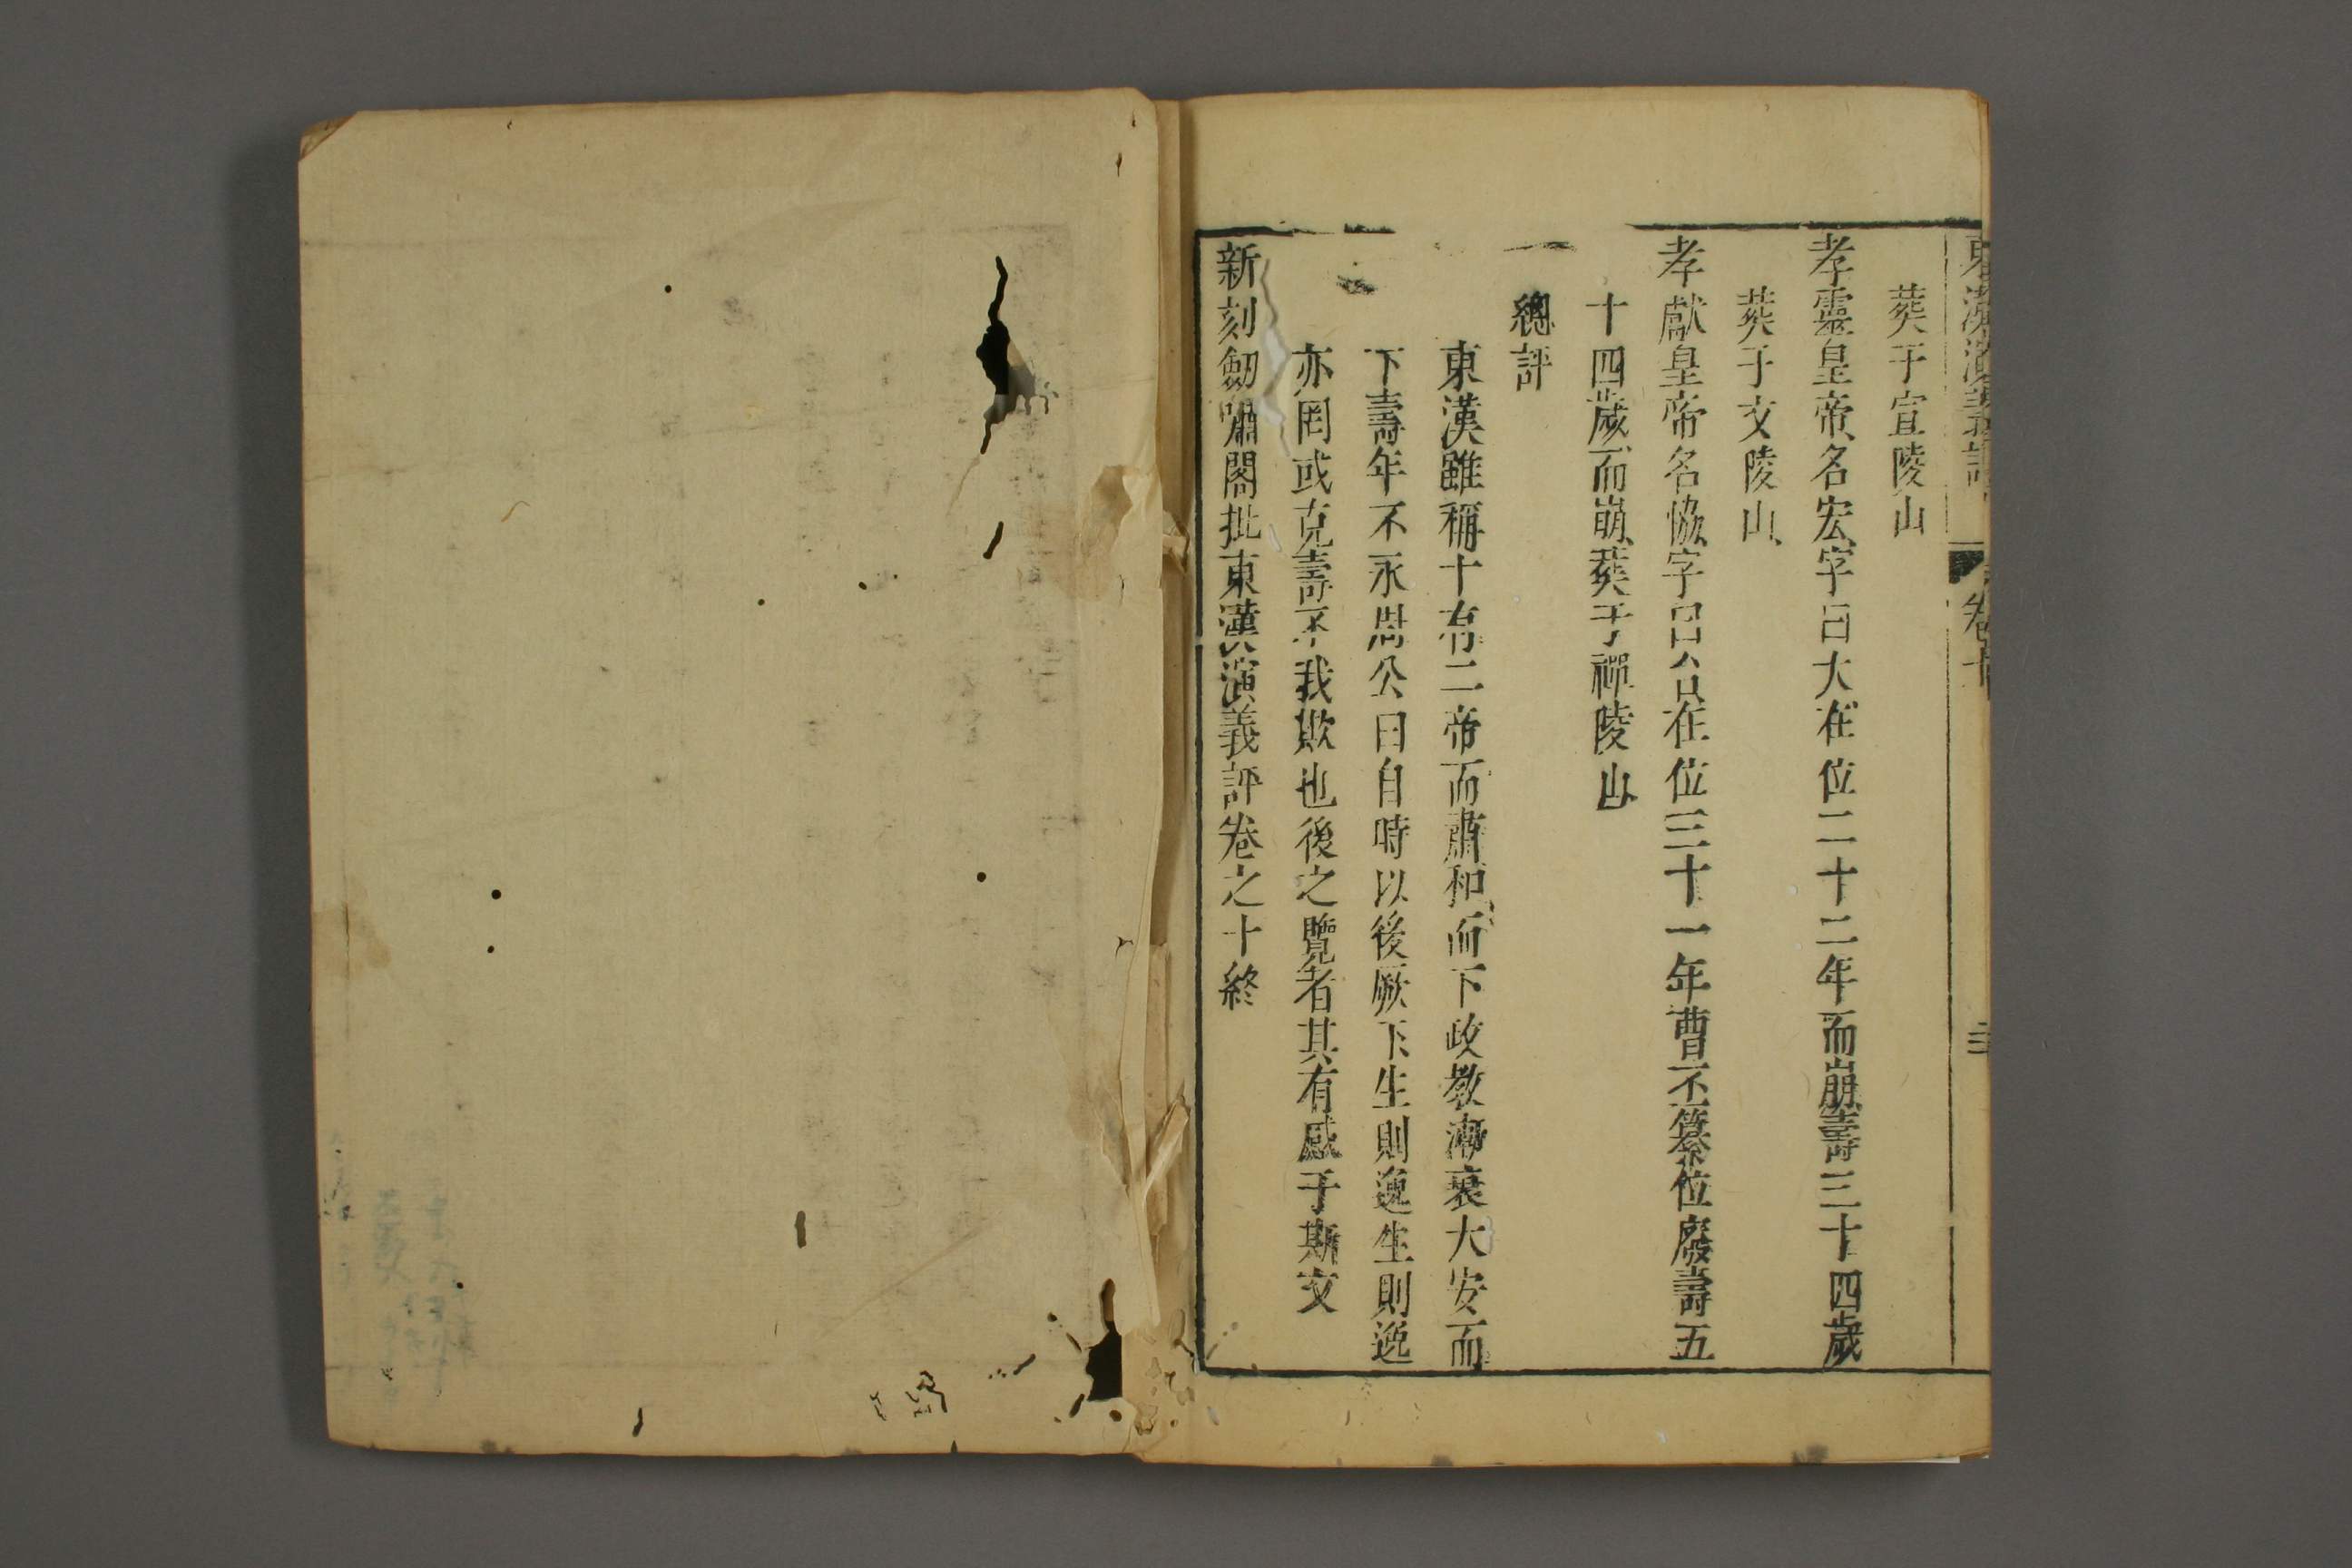 東漢演義評
卷十
葬于宣陵山
孝靈皇帝名宏字曰大在位二十二年而崩壽三十四歲
葬于文陵山
孝獻皇帝名恊字曰合在位三十一年曹丕篡位廢壽五
十四歲而崩葬于禪陵山
總評
東漢雖稱十有二帝而肅和而下政教漸衰大安而
下壽年不永周公曰自時以後厥下生則逸生則逸
亦罔或克壽不我欺也後之覽者其有感于斯文
新刻劒嘯閣批東漢演義評卷之十終